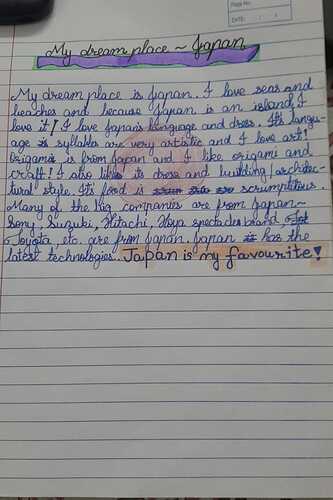 Page No.
DATE: / /
My dream place ~ Japan
My dream place is Japan. I love seas and
beaches and because Japan is an island, I
love it! I love Japan's language and dress. It's langu-
age syllabla are very artistic and I love art!
Origami is from Japan and I like origami and
craft! I also like its dress and building/architec-
tural style. Its food is scrumptious.
Many of the big companies are from Japan~
Sony, Suzuki, Hitachi, Hoya spectacles brand,
Toyota, etc. are from Japan. Japan has the
latest technologies. Japan is my favourite!